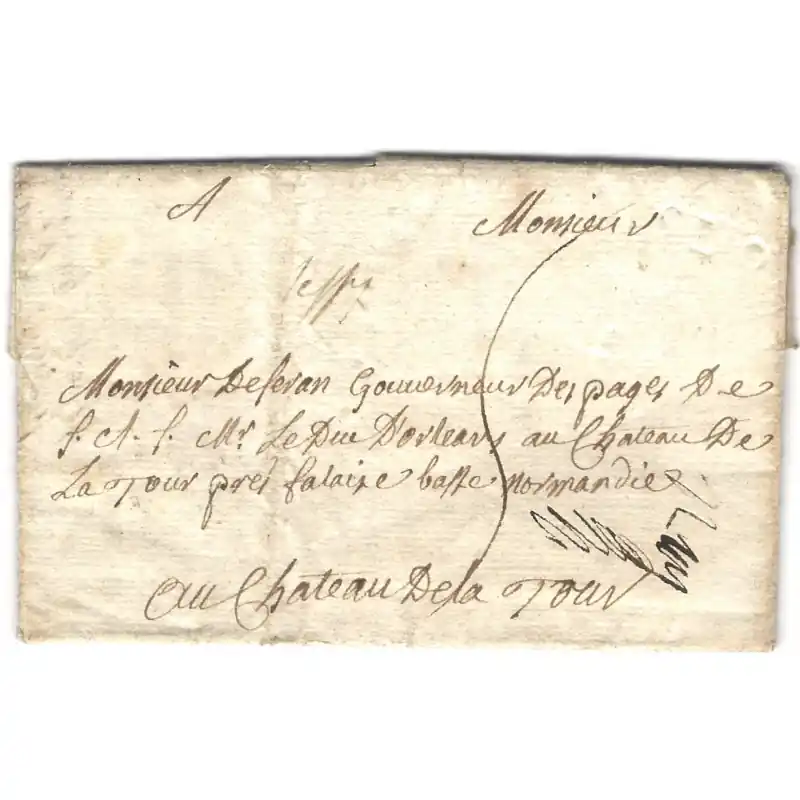 A Monsieur
Monsieur Deseran Gouverneur Des pages De
S. A. S. Mr. Le Duc D'orleans au Chateau De
La Tour prés falaise basse normandie
au Chateau De la Tour